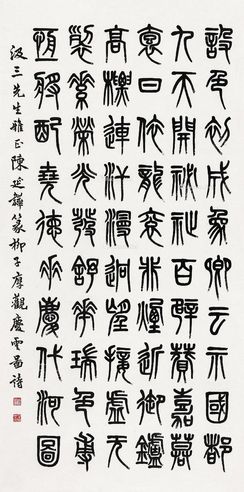 設色初成象卿云示國都
九天開祕祉百辟贊嘉謨
褱日依龍袞非煙近御鑪
高標連汗漫迥望接虛无
裂素榮光發舒華瑞色敷
恆將配堯德垂慶代河圖
汲三先生雅正陳延韡篆柳子厚觀慶雲圖詩